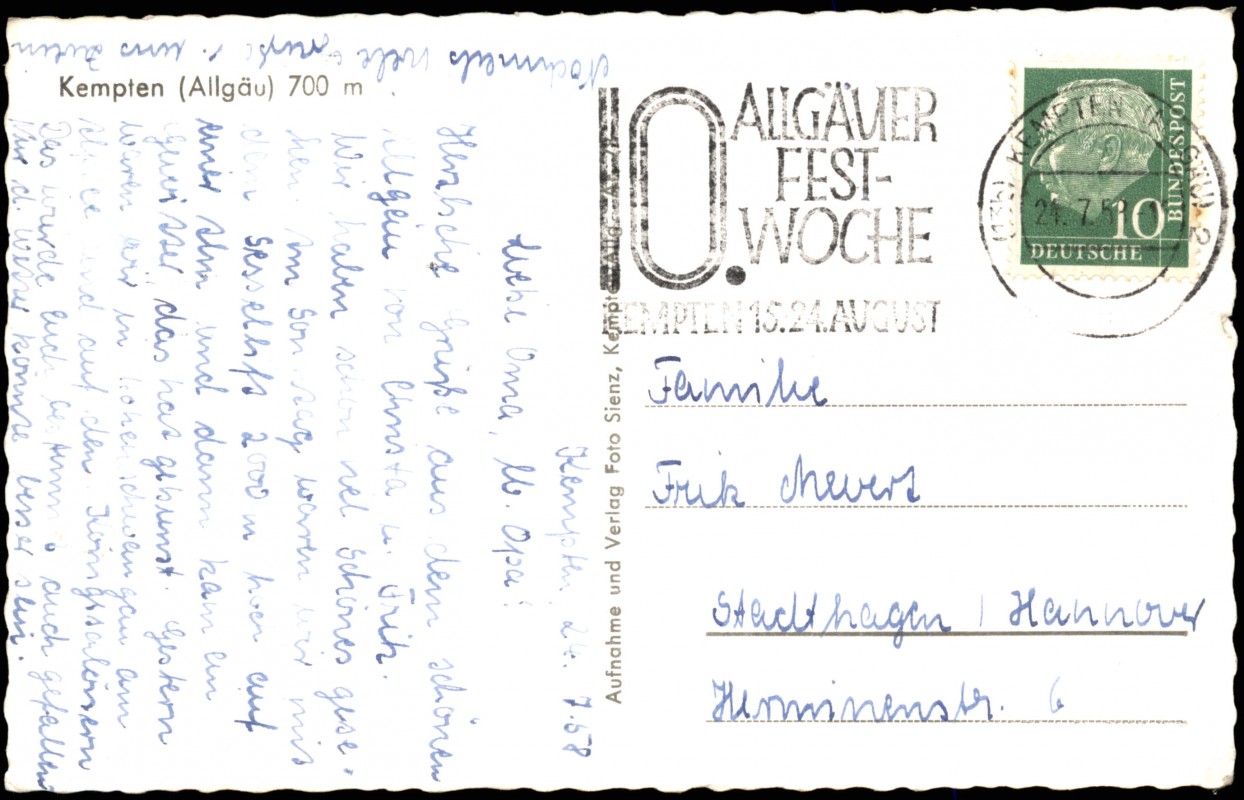 Kempten (Allgäu) 700 m
Kempten, 24. 7.58
Liebe Oma, u. Opa!
Herzliche Grüße aus dem schönen
Allgäu von Christa u. Fritz.
Wir haben schon viel schönes gese-
hen. Am Sonntag waren wir mit
dem Sessellift 2000 m hoch auf
einer Alm und dann kam ein
Gewisser, das hat gebumst. Gestern
waren wir in Hohenschwangau am
und auf den Königsalösern
Das würde Euch bestimmt auch gefallen
Nur d. Wetter könnte besser sein.
Nochmals viele Grüße v. uns
Aufnahme und Verlag Foto Sienz, Kempten-Allg.
10. ALLGÄUER
FEST-
WOCHE
KEMPTEN 15.-24. AUGUST
(13b) KEMPTEN (ALLGÄU) 2
24. 7.58
10
DEUTSCHE
BUNDESPOST
Familie
Fritz Mevert
Stadthagen / Hannover
Herminenstr. 6